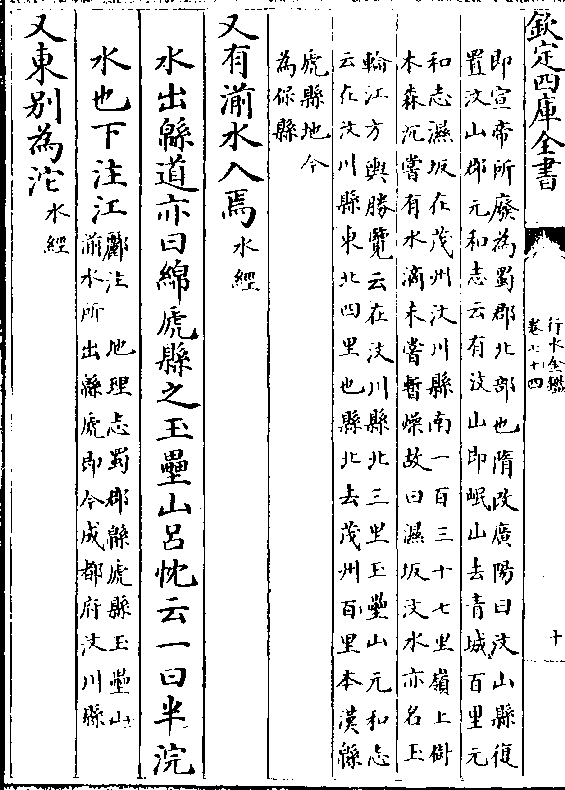 欽定四庫全書
行水金鑑
卷七十四
十
即宣帝所廢為蜀郡北部也隋改廣陽曰汶山縣復
置汶山郡元和志云有汶山即岷山去青城百里元
和志濕坂在茂州汶川縣南一百三十七里嶺上樹
木森沉嘗有水滴未嘗暫燥故曰濕坂汶水亦名玉
輪江方輿勝覽云在汶川縣北三里玉壘山元和志
云在汶川縣東北四里也縣北去茂州百里本漢緜
虎縣地今
為保縣
又有湔水入焉水經
水出緜道亦曰綿虎縣之玉壘山呂忱云一曰半浣
水也下注江酈注 地理志蜀郡緜虎縣玉壘山
湔水所出緜虎即今成都府汶川縣
又東別為沱水經